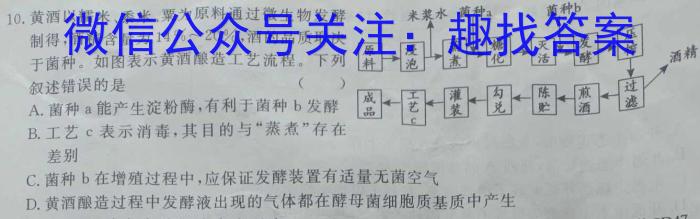 10. 黄酒以糯米、黍米、粟为原料通过微生物发酵
制得,
微信公众号关注：趣找答案
于菌种。如图表示黄酒酿造工艺流程。下列
叙述错误的是 ( )
A. 菌种 a 能产生淀粉酶,有利于菌种 b 发酵
B. 工艺 c 表示消毒,其目的与“蒸煮”存在
差别
C. 菌种 b 在增殖过程中,应保证发酵装置有适量无菌空气
D. 黄酒酿造过程中发酵液出现的气体都在酵母菌细胞质基质中产生
米浆水 菌种a 菌种b
原料 浸泡 蒸煮 糖化 灭活 发酵 压榨
酒精
成品 工艺c 灌装 勾兑 陈贮 煎酒 过滤